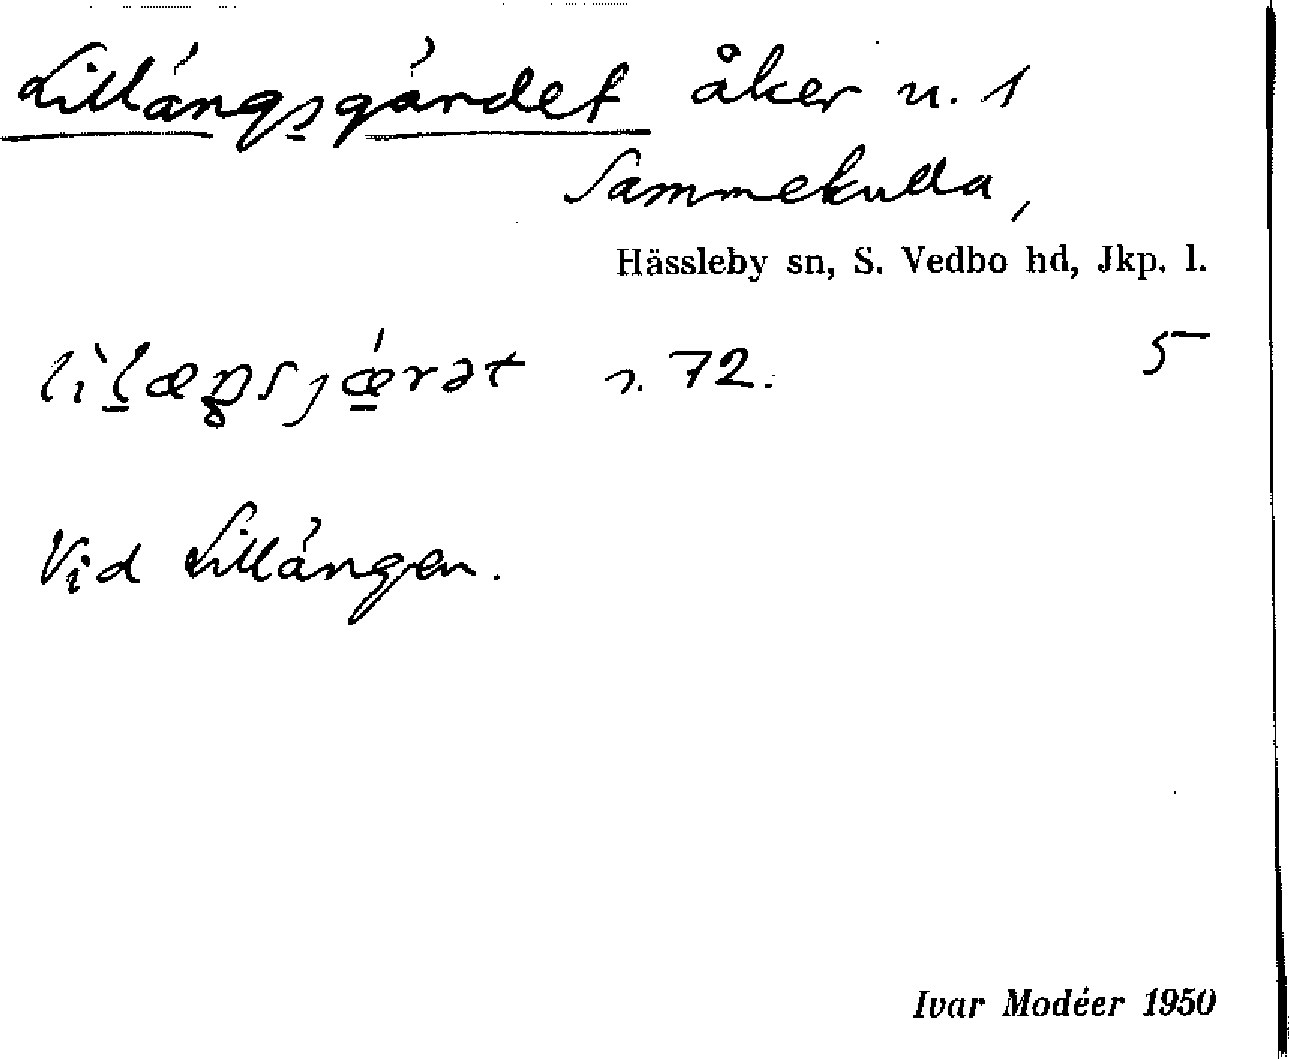 Lillängsgärdet åker n. 1
Sammekulla,
Hässleby sn, S. Vedbo hd, Jkp. l.
lìl̠æŋsjǽ̠rət s. 72. 5
Vid Lillängen.
Ivar Modéer 1950